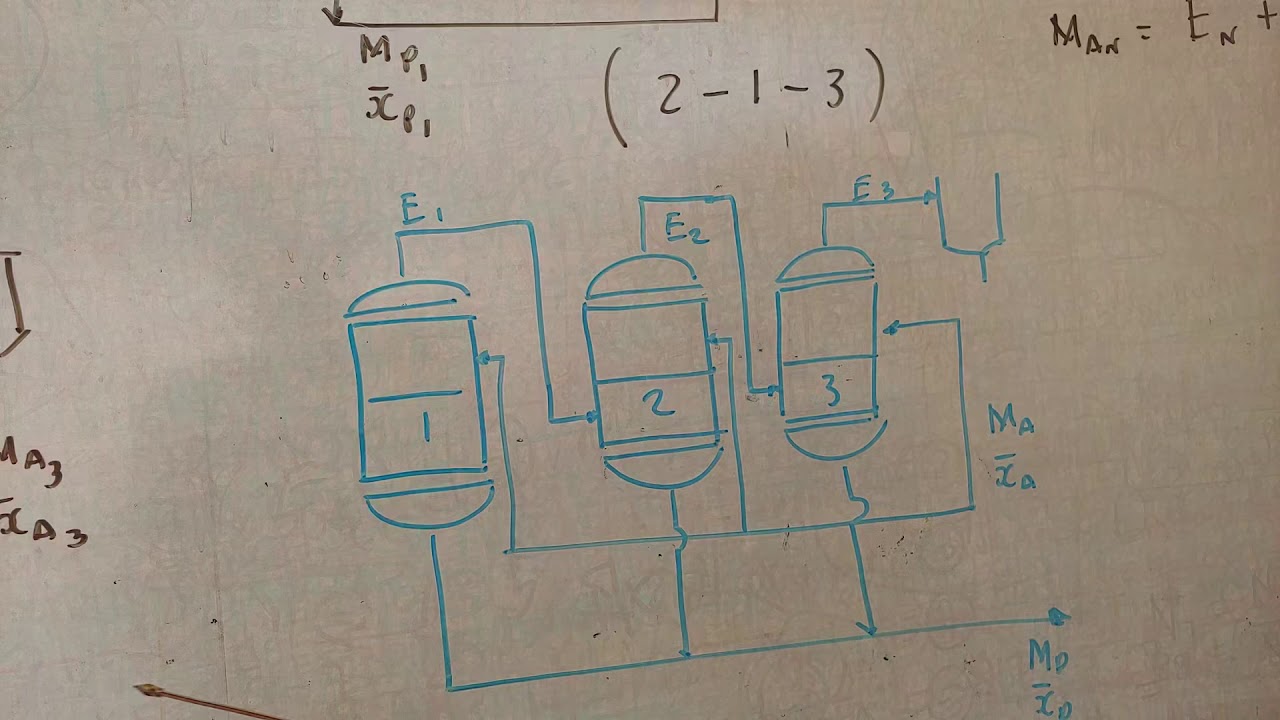 M_P₁
x̄_P₁
M_AN = E_N +
(2-1-3)
E₁
E₂
E3
1
2
3
M_A
x̄_A
M_A₃
x̄_A₃
M_D
x̄_D